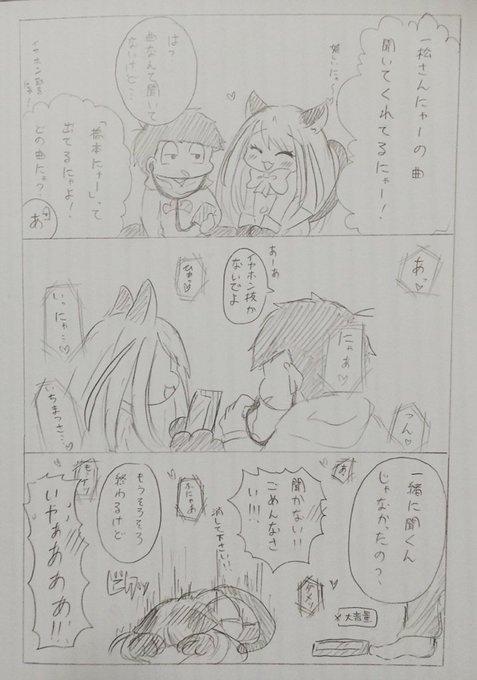 一松さんにゃーの曲
聞いてくれてるにゃー!
嬉しいにゃ〜♡
はっ
曲なんて聞いて
ないけど…
「橋本にゃー」って
出てるにゃよ!
どの曲にゃ?
あ
あっ♡
あーあ
イヤホン抜か
ないでよ
ひゃっ♡
にゃあ♡
いっにゃ…♡
いちまっさ…♡
っん♡
一緒に聞くん
じゃなかったの?
あ
聞かない!!
ごめんなさ
い!!!
消して下さい!!
ふにゃあ
もうそろそろ
終わるけど
いやぁあああ!!!
※大音量